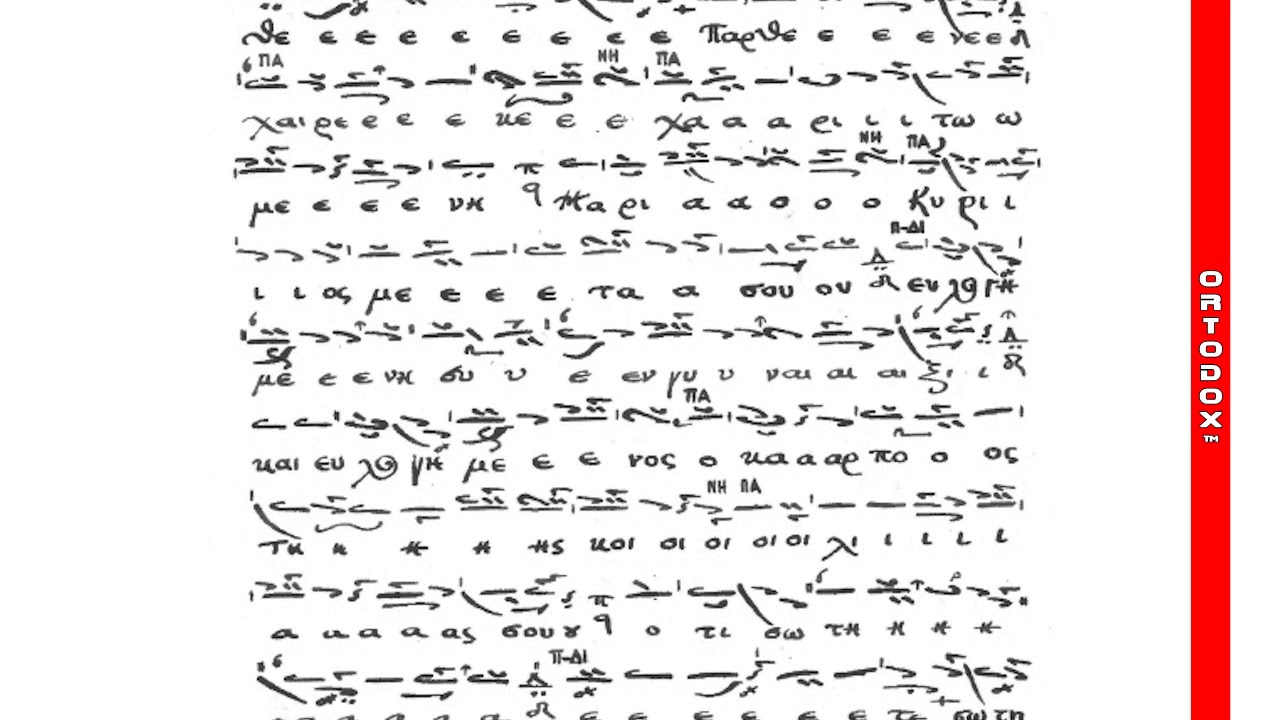 θε ε ε ε ε ε ε ε ε Παρθε ε ε ε νε ε
ΠΑ ΝΗ ΠΑ
χαιρε ε ε ε κε ε ε χα α α ρι ι ι τω ω
ΝΗ ΠΑ
με ε ε ε νη Μα ρι α α ο ο ο Κυ ρι ι
Π-ΔΙ
ι ι ος με ε ε ε τα α σου ου ευ λο γη
με ε ε νη συ υ ε εν γυ υ ναι αι αι ξι ι
ΠΑ
και ευ λο γη με ε ε νος ο κα α αρ πο ο ος
ΝΗ ΠΑ
τη η η η ης κοι οι οι οι οι λι ι ι ι ι
α α α α ας σου ο τι σω τη η η η
Π-ΔΙ
ε ε ε ε ε τε σω τη
ORTODOX™